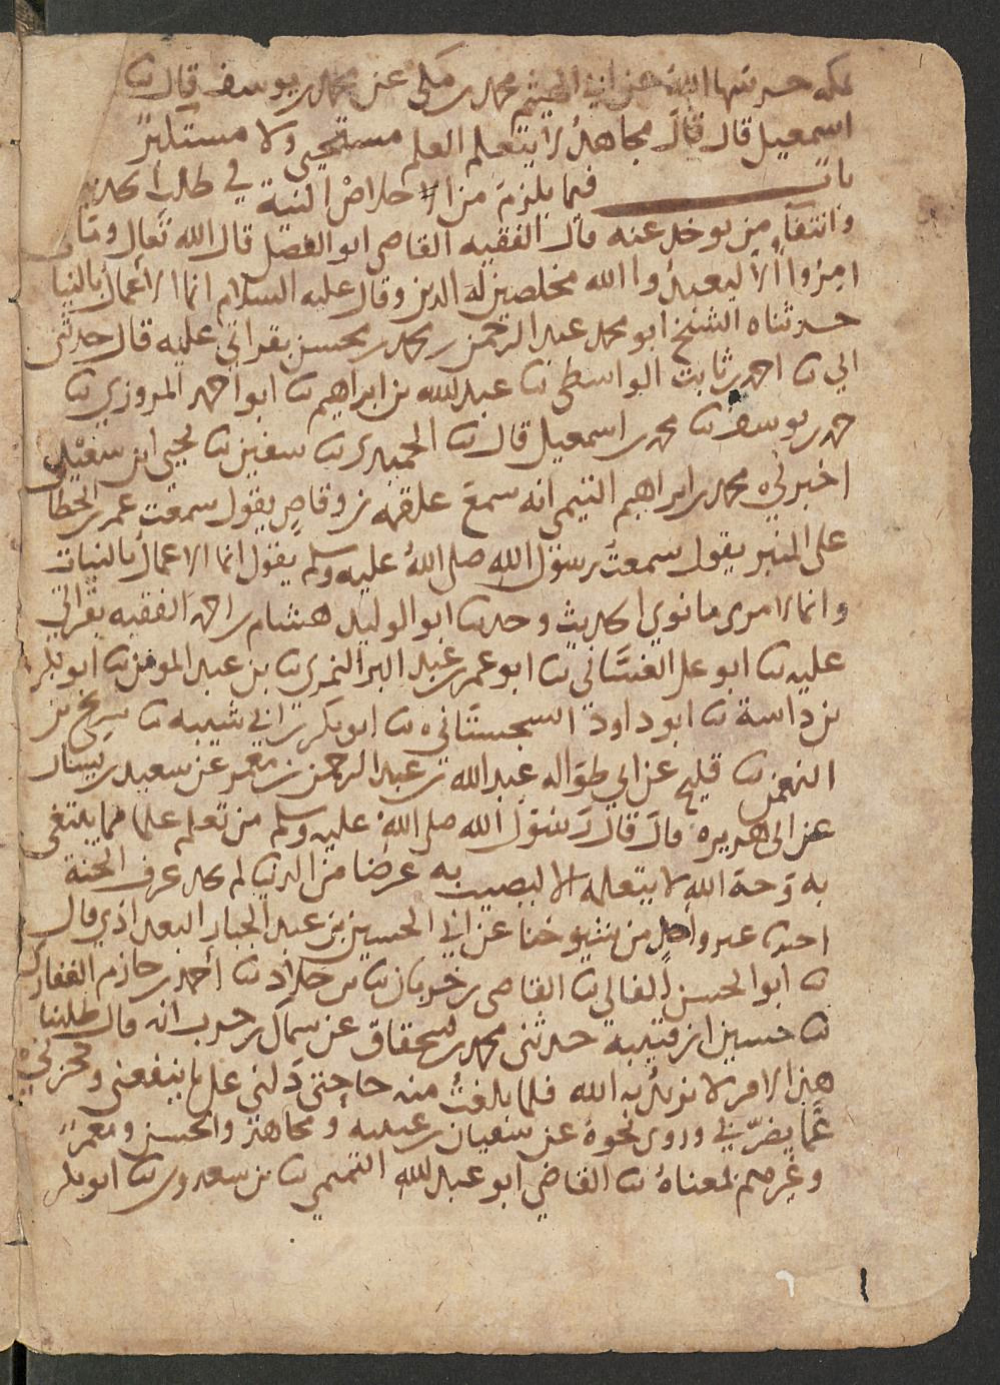 بمكه حدثتها الله عن ابي الهيثم محمد بن مكي عن محمد بن يوسف قال نا
اسمعيل قال قال مجاهد لا يتعلم العلم مستحيي ولا مستكبر
باب فيما يلزم من الاخلاص النية في طلب الحديث
وانتقآء من يوخذ عنه قال الفقيه القاضي ابو الفضل قال الله تعالى وما
امروا الا ليعبدوا الله مخلصين له الدين وقال عليه السلام انما الاعمال بالنيات
حدثناه الشيخ ابو محمد عبد الرحمن بن محمد بن محسن بقراتي عليه قال حدثني
ابي نا احمد بن ثابت الواسطي نا عبد الله بن ابراهيم نا ابو احمد المروزي نا
محمد بن يوسف نا محمد بن اسمعيل قال نا الحميدي نا سفين نا يحيى ابن سعيد
اخبرني محمد بن ابراهيم التيمي انه سمع علقمه بن وقاص يقول سمعت عمر بن الخطاب
على المنبر يقول سمعت رسول الله صلى الله عليه وسلم يقول انما الاعمال بالنيات
وانما لامرى ما نوى الحديث وحدثنا ابو الوليد هشام بن احمد الفقيه بقراتي
عليه نا ابو علي الغساني نا ابو عمر بن عبد البر النمري نا بن عبد المومن نا ابو بكر
بن داسة نا ابو داود السجستاني نا ابو بكر بن ابي شيبه نا سريج بن
النعمن نا فليح عن ابي طواله عبد الله بن عبد الرحمن بن معمر عن سعيد بن يسار
عن ابي هريره قال قال رسول الله صلى الله عليه وسلم من تعلم علما مما يبتغى
به وجه الله لا يتعلمه الا ليصيب به عرضا من الدنيا لم يجد عرف الجنة
اخبرنا غير واحد من شيوخنا عن ابي الحسين بن عبد الجبار البغداذي قال
نا ابو الحسن الفالي نا القاضي بن خربان نا بن خلاد نا احمد بن حازم الغفاري
نا حسين ابن قتيبة حدثني محمد بن اسحاق عن سماك بن حرب انه قال طلبنا
هذا الامر لا نريد به الله فلما بلغت منه حاجتي دلني على ما ينفعني وحجزني
عما يضرني وروى نحوه عن سفيان بن عيينه ومجاهد والحسن ومعمر
وغيرهم بمعناه نا القاضي ابو عبد الله التميمي نا بن سعدون نا ابو بكر
١